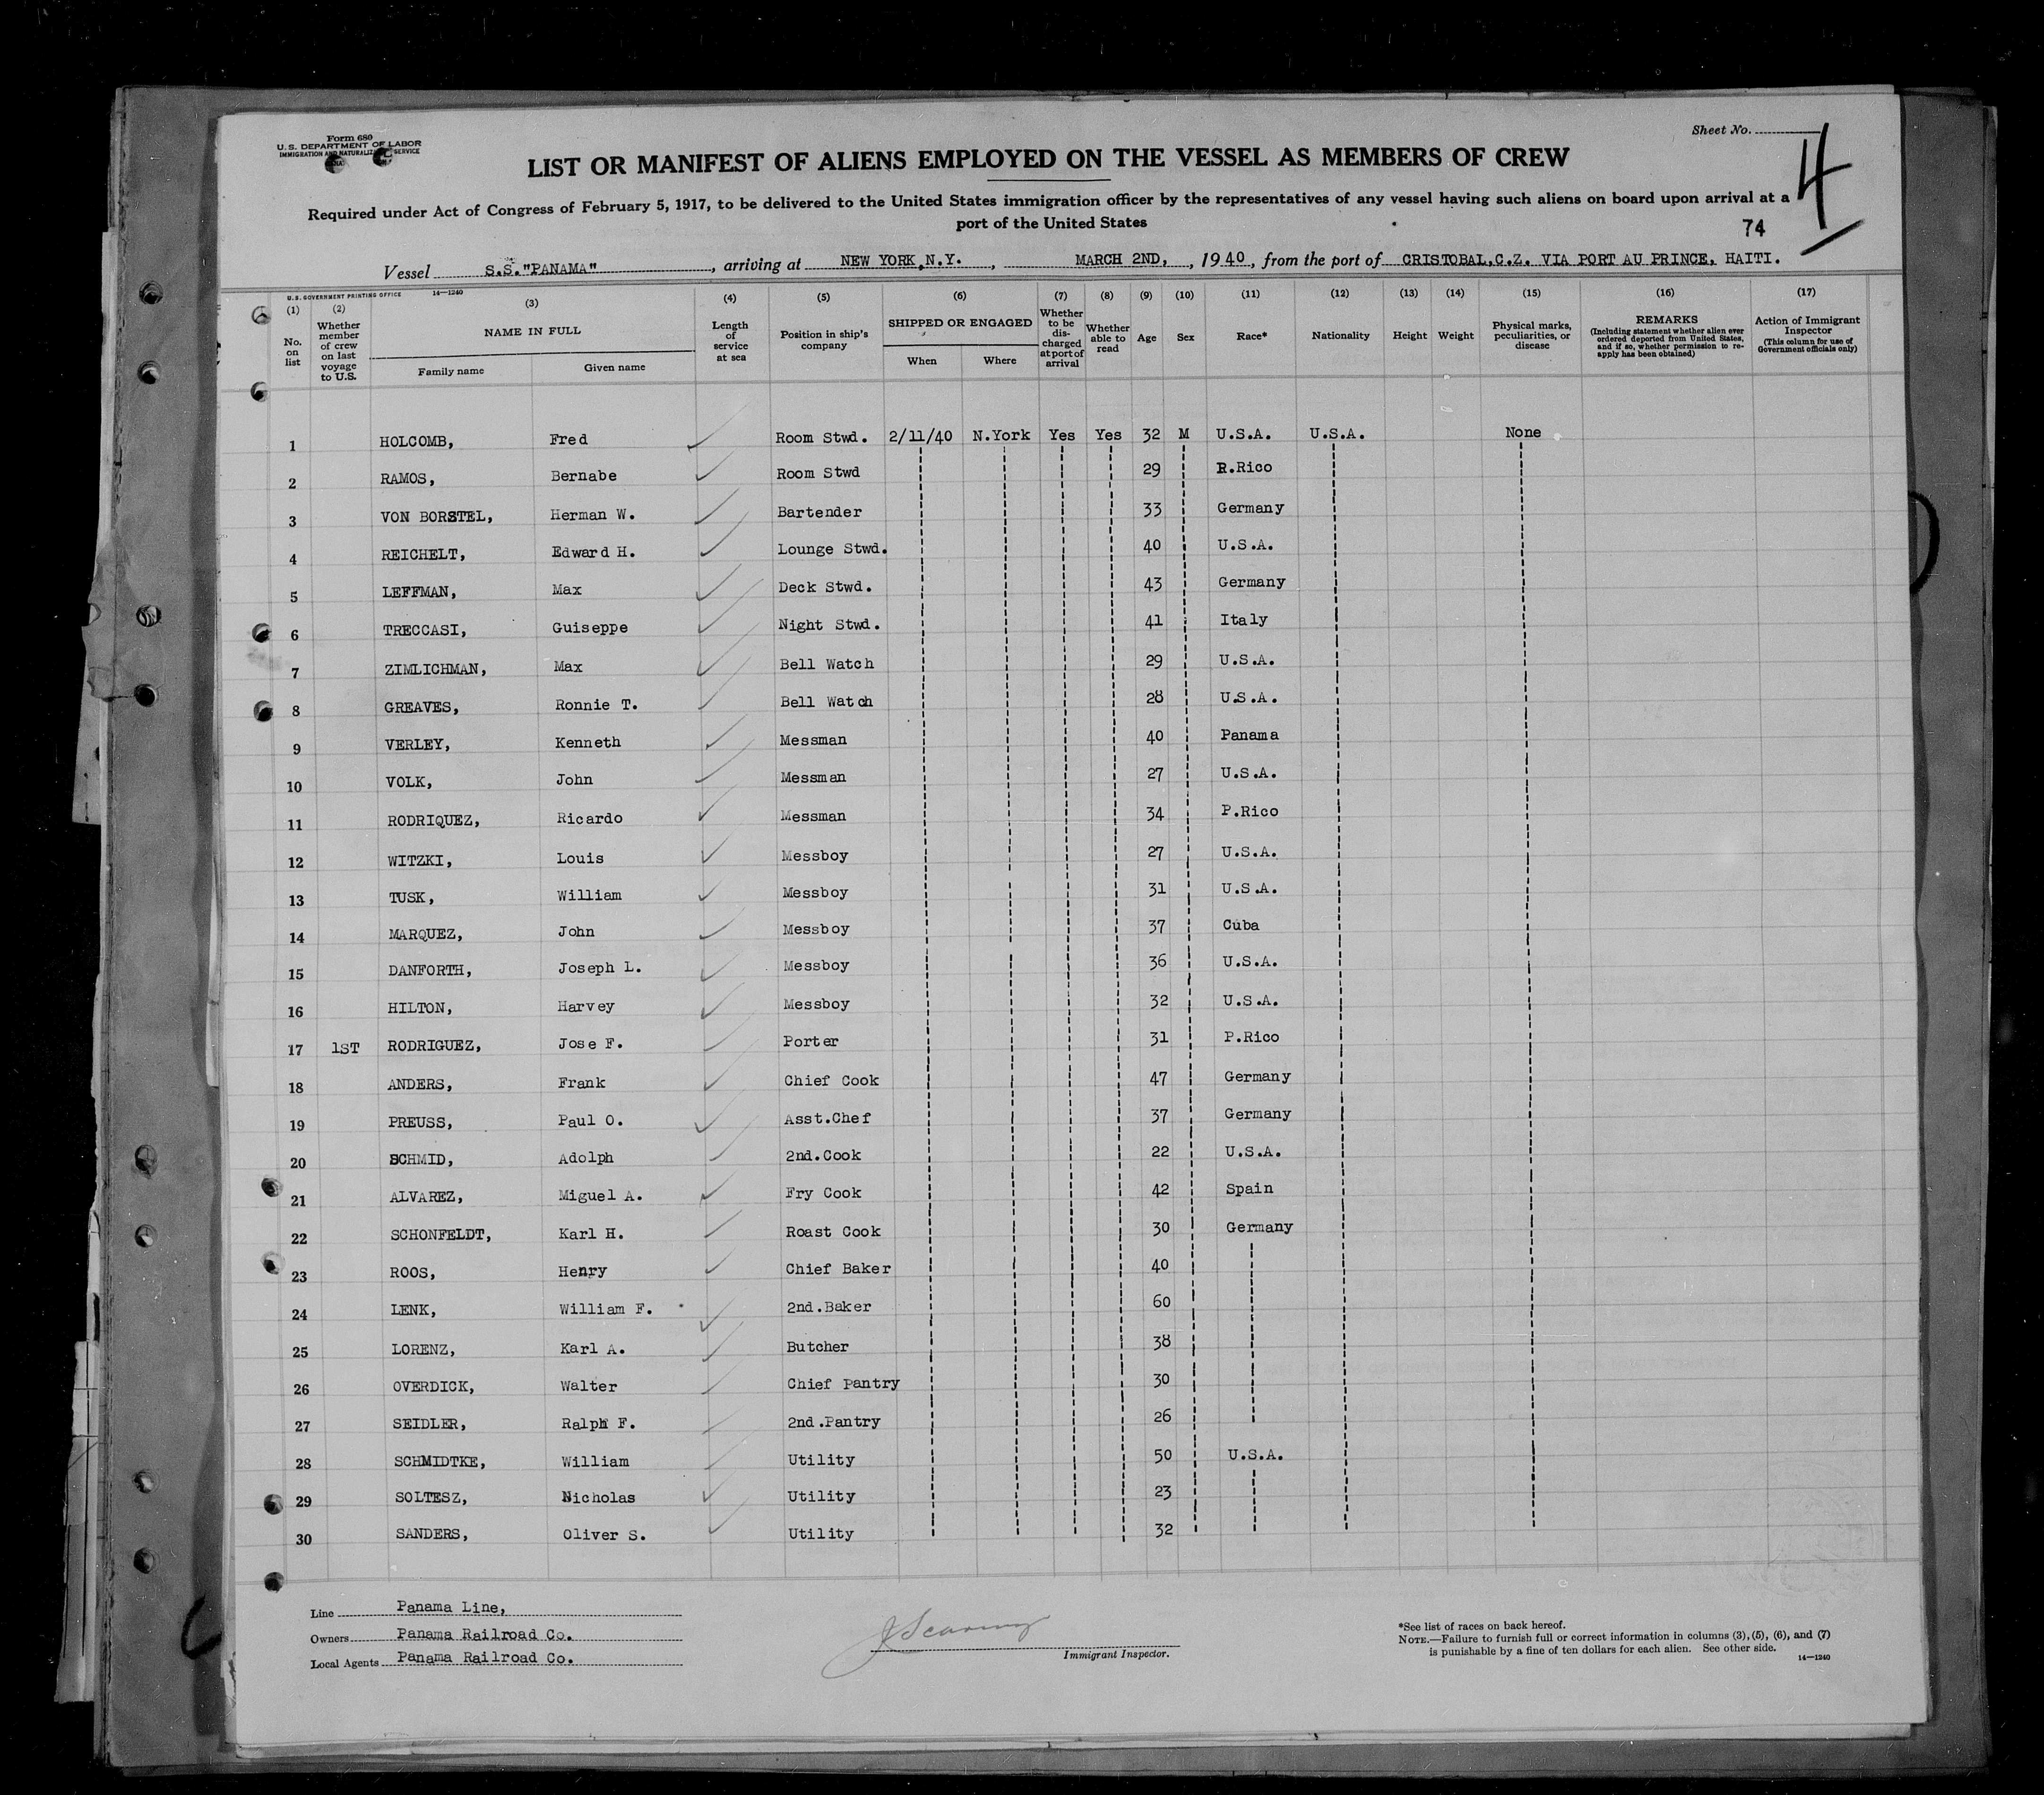 Form 680
U. S. DEPARTMENT OF LABOR
IMMIGRATION AND NATURALIZATION SERVICE
Sheet No.
4
LIST OR MANIFEST OF ALIENS EMPLOYED ON THE VESSEL AS MEMBERS OF CREW
Required under Act of Congress of February 5, 1917, to be delivered to the United States immigration officer by the representatives of any vessel having such aliens on board upon arrival at a
port of the United States
74
Vessel S.S."PANAMA", arriving at NEW YORK,N.Y., MARCH 2ND, , 1940, from the port of CRISTOBAL,C.Z. VIA PORT AU PRINCE, HAITI.
U. S. GOVERNMENT PRINTING OFFICE 14—1240
(1) No. on list
(2) Whether member of crew on last voyage to U.S.
(3) NAME IN FULL
Family name Given name
(4) Length of service at sea
(5) Position in ship's company
(6) SHIPPED OR ENGAGED
When Where
(7) Whether to be discharged at port of arrival
(8) Whether able to read
(9) Age
(10) Sex
(11) Race*
(12) Nationality
(13) Height
(14) Weight
(15) Physical marks, peculiarities, or disease
(16) REMARKS (Including statement whether alien ever ordered deported from United States, and if so, whether permission to reapply has been obtained)
(17) Action of Immigrant Inspector (This column for use of Government officials only)
1 HOLCOMB, Fred Room Stwd. 2/11/40 N.York Yes Yes 32 M U.S.A. U.S.A. None
2 RAMOS, Bernabe Room Stwd 29 P.Rico
3 VON BORSTEL, Herman W. Bartender 33 Germany
4 REICHELT, Edward H. Lounge Stwd. 40 U.S.A.
5 LEFFMAN, Max Deck Stwd. 43 Germany
6 TRECCASI, Guiseppe Night Stwd. 41 Italy
7 ZIMLICHMAN, Max Bell Watch 29 U.S.A.
8 GREAVES, Ronnie T. Bell Watch 28 U.S.A.
9 VERLEY, Kenneth Messman 40 Panama
10 VOLK, John Messman 27 U.S.A.
11 RODRIQUEZ, Ricardo Messman 34 P.Rico
12 WITZKI, Louis Messboy 27 U.S.A.
13 TUSK, William Messboy 31 U.S.A.
14 MARQUEZ, John Messboy 37 Cuba
15 DANFORTH, Joseph L. Messboy 36 U.S.A.
16 HILTON, Harvey Messboy 32 U.S.A.
17 1ST RODRIGUEZ, Jose F. Porter 31 P.Rico
18 ANDERS, Frank Chief Cook 47 Germany
19 PREUSS, Paul O. Asst.Chef 37 Germany
20 SCHMID, Adolph 2nd.Cook 22 U.S.A.
21 ALVAREZ, Miguel A. Fry Cook 42 Spain
22 SCHONFELDT, Karl H. Roast Cook 30 Germany
23 ROOS, Henry Chief Baker 40
24 LENK, William F. 2nd.Baker 60
25 LORENZ, Karl A. Butcher 38
26 OVERDICK, Walter Chief Pantry 30
27 SEIDLER, Ralph F. 2nd.Pantry 26
28 SCHMIDTKE, William Utility 50 U.S.A.
29 SOLTESZ, Nicholas Utility 23
30 SANDERS, Oliver S. Utility 32
Line Panama Line,
Owners Panama Railroad Co.
Local Agents Panama Railroad Co.
Immigrant Inspector.
*See list of races on back hereof.
NOTE.—Failure to furnish full or correct information in columns (3), (5), (6), and (7)
is punishable by a fine of ten dollars for each alien. See other side.
14—1240